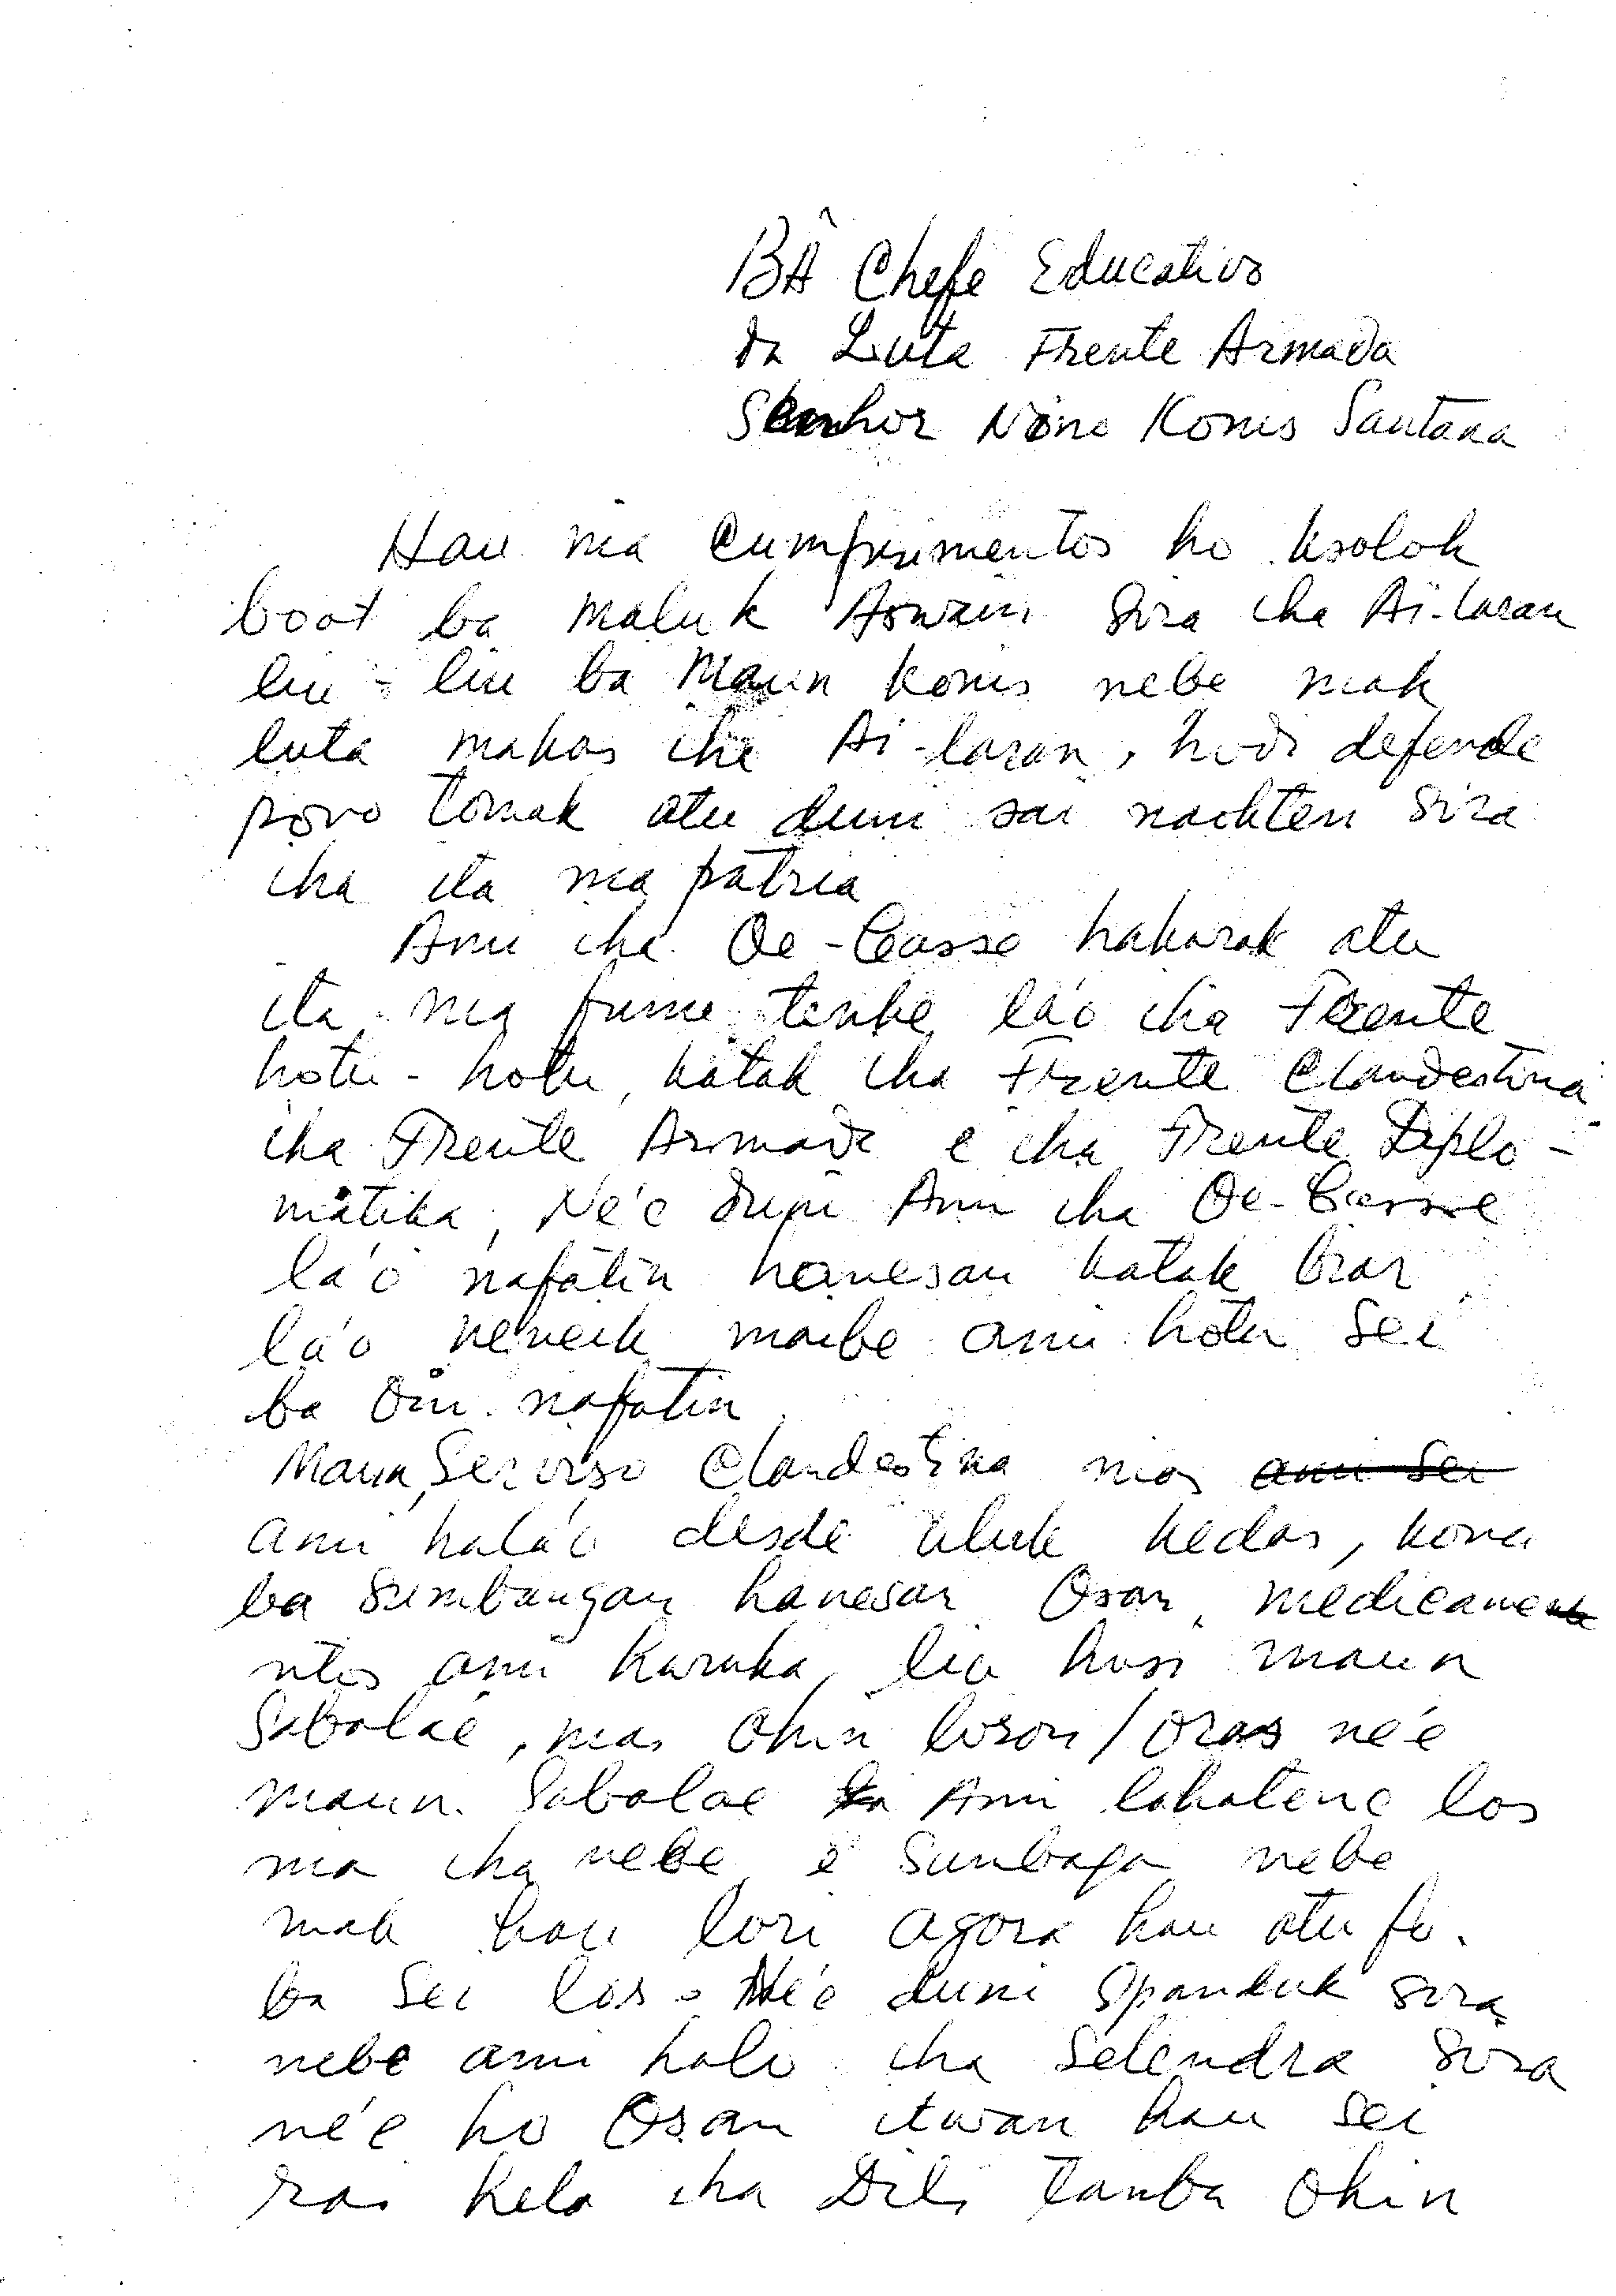 BÂ Chefe Educativo
da Luta Frente Armada
Senhor Nino Konis Santana
Hau nia Cumprimentos ho ksolok
boot ba Maluk Aswain Sira iha Ai-laran
liu-liu ba Maun Konis nebe mak
luta makas iha Ai-laran, hodi defende
povo tomak atu duni sai sira
iha ita nia patria
Ami iha Oe-Cusse hakarak atu
ita nia lá'o iha Frente
hotu-hotu, katak iha Frente Clandestina
iha Frente Armada e iha Frente Diplo-
mátika, Né'e duni Ami iha Oe-Cusse
lá'o nafatin hanesan katak
lá'o neneik maibe ami hotu sei
ba Oin nafatin
Maun, Serviso Clandestina mos
ami halá'o desde uluk kedas, kona
ba Sumbangan hanesan Osan, medicame
ntos ami haruka, liu husi maun
Sabalae, mas Ohin loron/oras né'e
maun Sabalae Ami lahatene los
nia iha nebe e Sunbaga nebe
mak hau lori agora hau atu fo
ba sei los. Né'e duni Spanduk sira
nebe ami halo iha Selendra Sira
né'e ho Osan itwan hau sei
rai hela iha Dili tanba Ohin